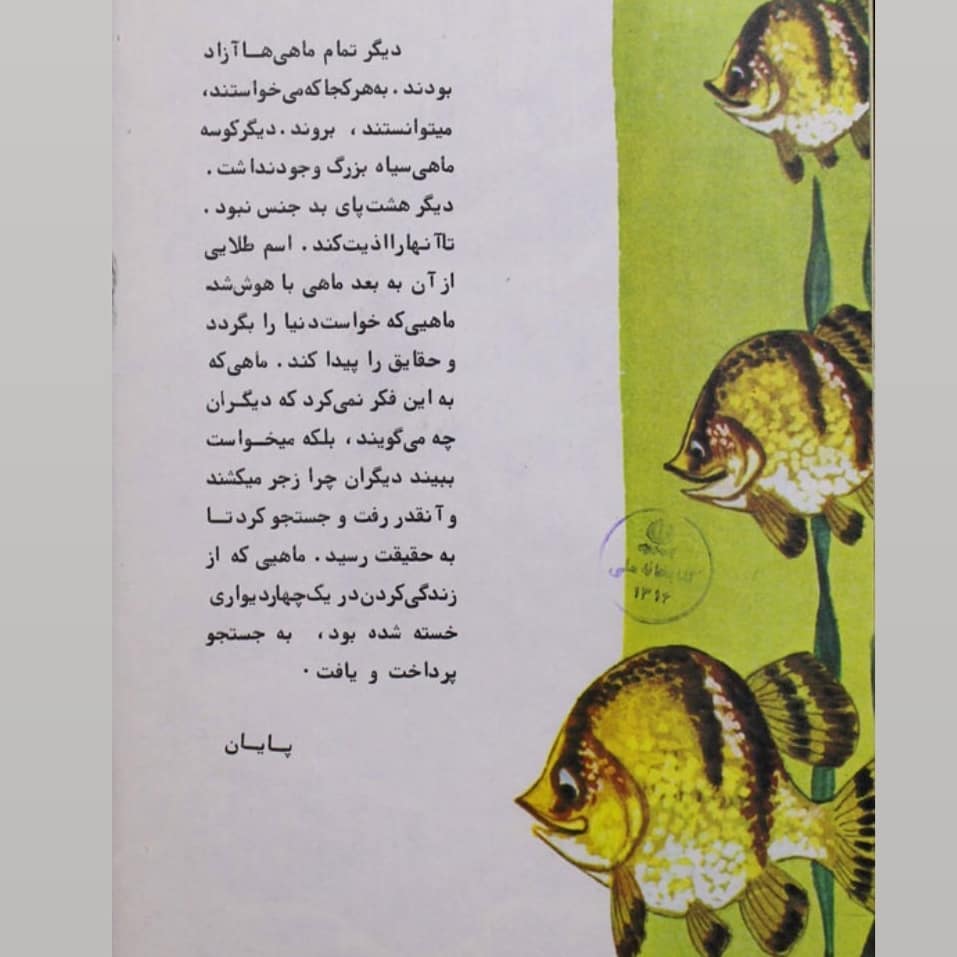 دیگر تمام ماهی‌ها آزاد
بودند . به‌هرکجاکه‌می‌خواستند،
میتوانستند ، بروند . دیگرکوسه
ماهی‌سیاه بزرگ وجودنداشت .
دیگر هشت‌پای بد جنس نبود .
تاآنهارااذیت‌کند . اسم طلایی
از آن به بعد ماهی با هوش‌شد.
ماهیی‌که خواست‌دنیا را بگردد
و حقایق را پیدا کند . ماهی‌که
به این فکر نمی‌کرد که دیگران
چه می‌گویند ، بلکه میخواست
ببیند دیگران چرا زجر میکشند
و آنقدر رفت و جستجو کرد تا
به حقیقت رسید . ماهیی که از
زندگی‌کردن‌در یک‌چهاردیواری
خسته شده بود ، به جستجو
پرداخت و یافت .
پایان
کتابخانه ملی
۱۳۱۶